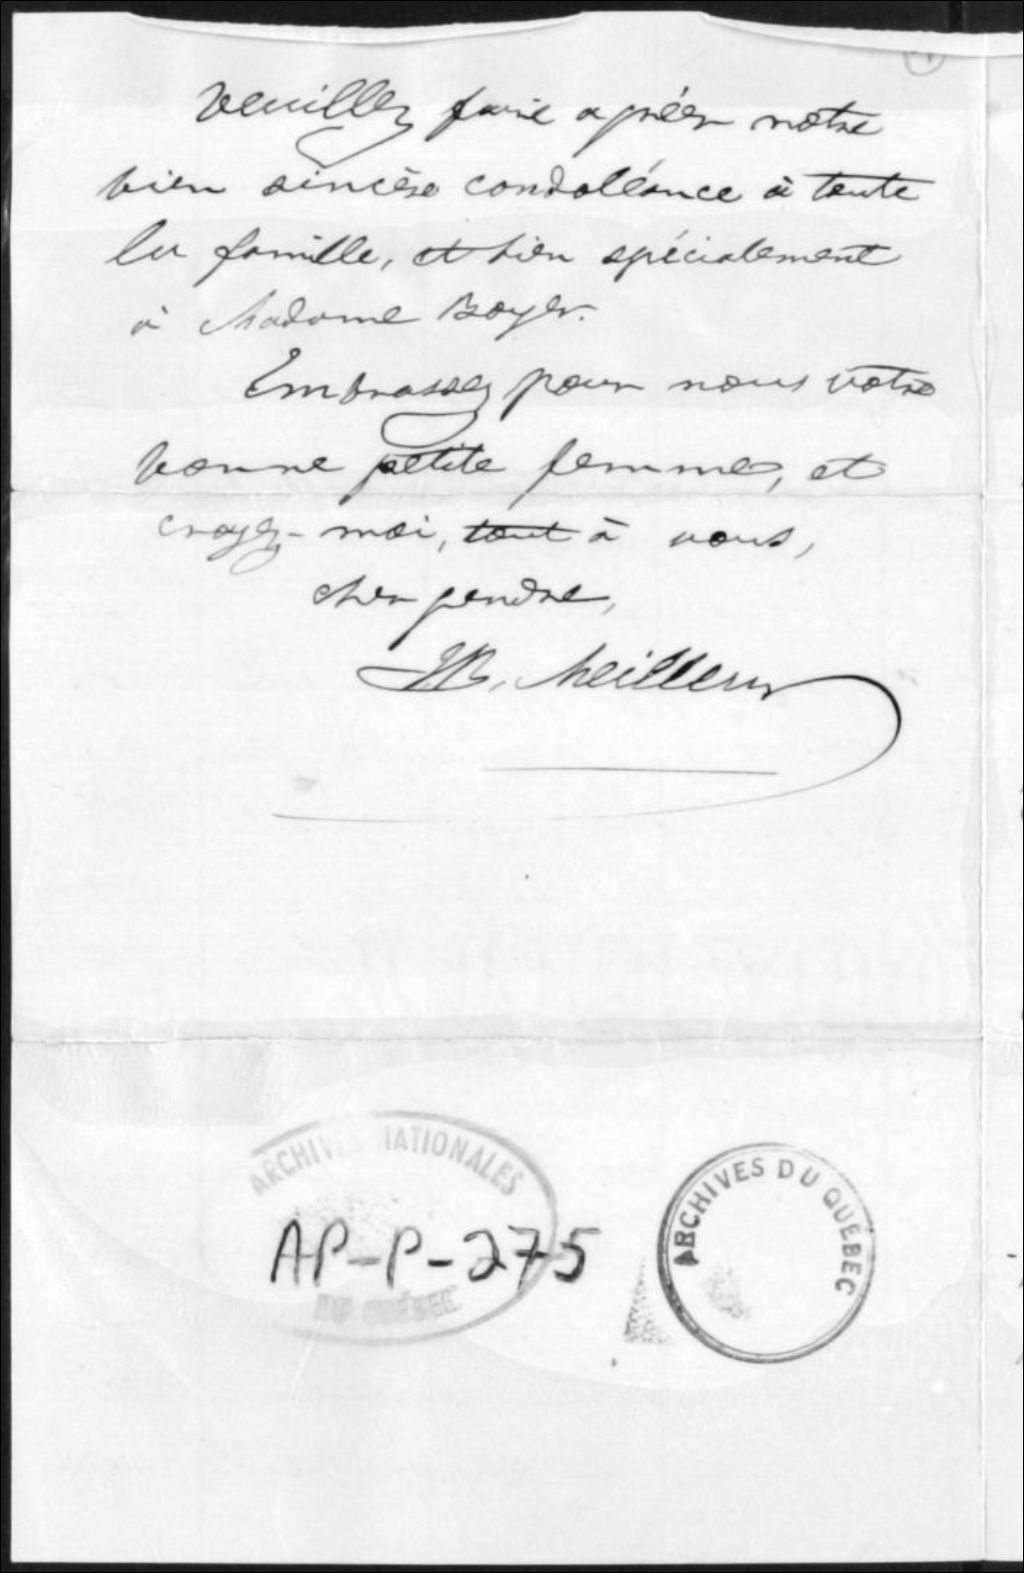 Veuillez faire agréer notre
bien sincère condoléance à toute
la famille, et bien spécialement
à Madame Boyer.
Embrassez pour nous votre
bonne petite femme, et
croyez-moi, tout à vous,
cher gendre,
JB. Meilleur
ARCHIVES NATIONALES
AP-P-275
DU QUÉBEC
ARCHIVES DU QUÉBEC